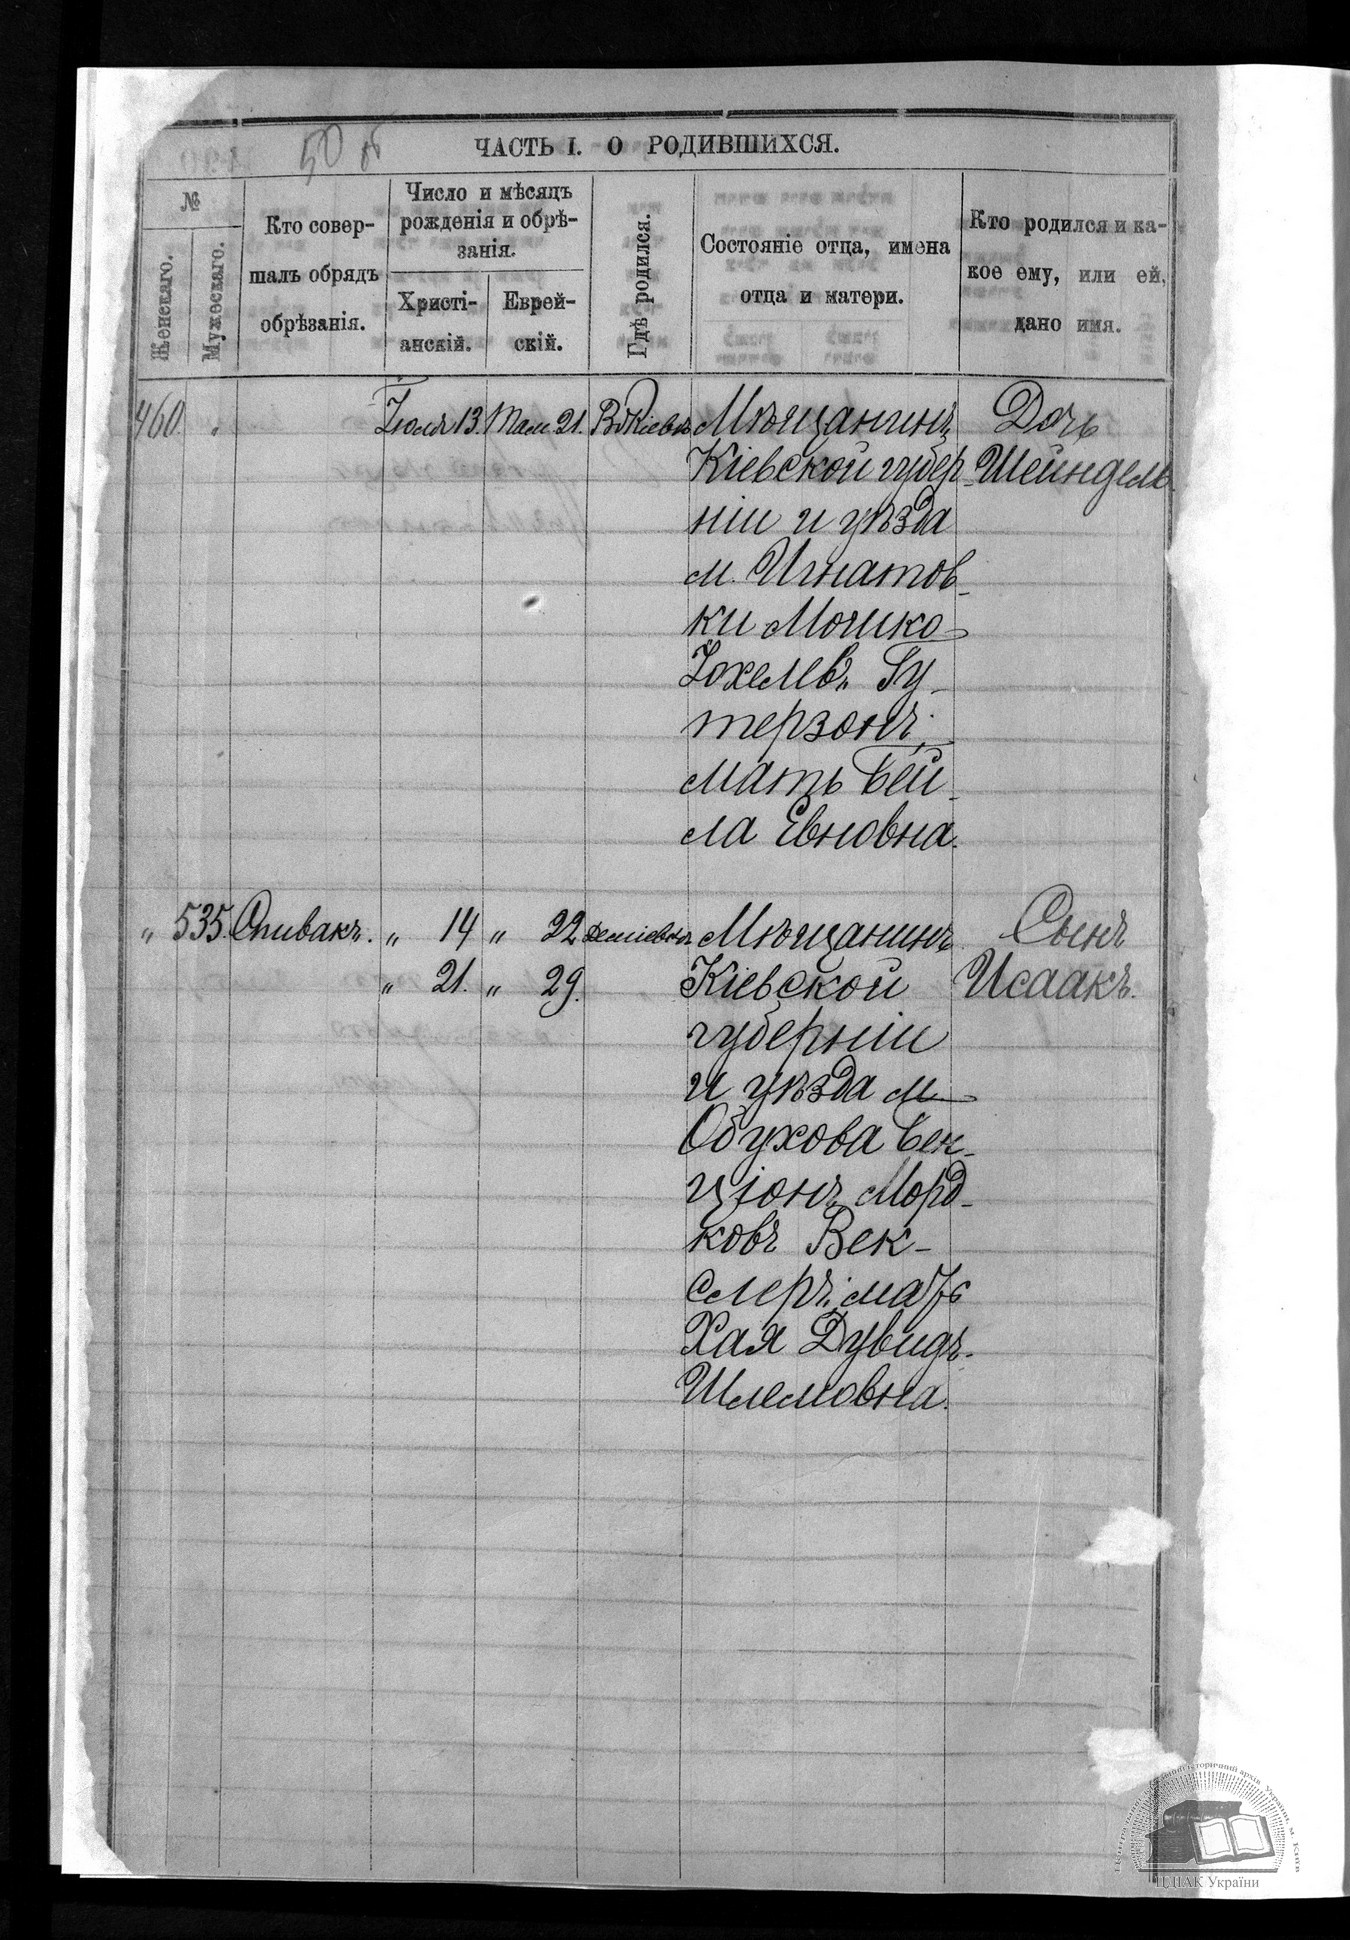 50 об
ЧАСТЬ I. О РОДИВШИХСЯ.
№
Женскаго.
Мужескаго.
Кто совер-
шалъ обрядъ
обрѣзанія.
Число и мѣсяцъ
рожденія и обрѣ-
занія.
Христі-
анскій.
Еврей-
скій.
Гдѣ родился.
Состояніе отца, имена
отца и матери.
Кто родился и ка-
кое ему, или ей,
дано имя.
460 „ Іюля 13. Там. 21. Въ Кіевѣ Мѣщанинъ Дочь
Кіевской губер- Шейндель
ніи и уѣзда
м. Игнатов-
ки Мошко-
Іохелевъ Гу-
терзонъ;
мать Бей-
ла Евновна.
„ 535. Спивакъ. „ 14 „ 22 Демievкѣ Мѣщанинъ Сынъ
„ 21. „ 29. Кіевской Исаакъ.
губерніи
и уѣзда м.
Обухова Бен-
ціонъ Морд-
ковъ Век-
слеръ; мать
Хая Дувидъ-
Шлемовна.
ЦДІАК України